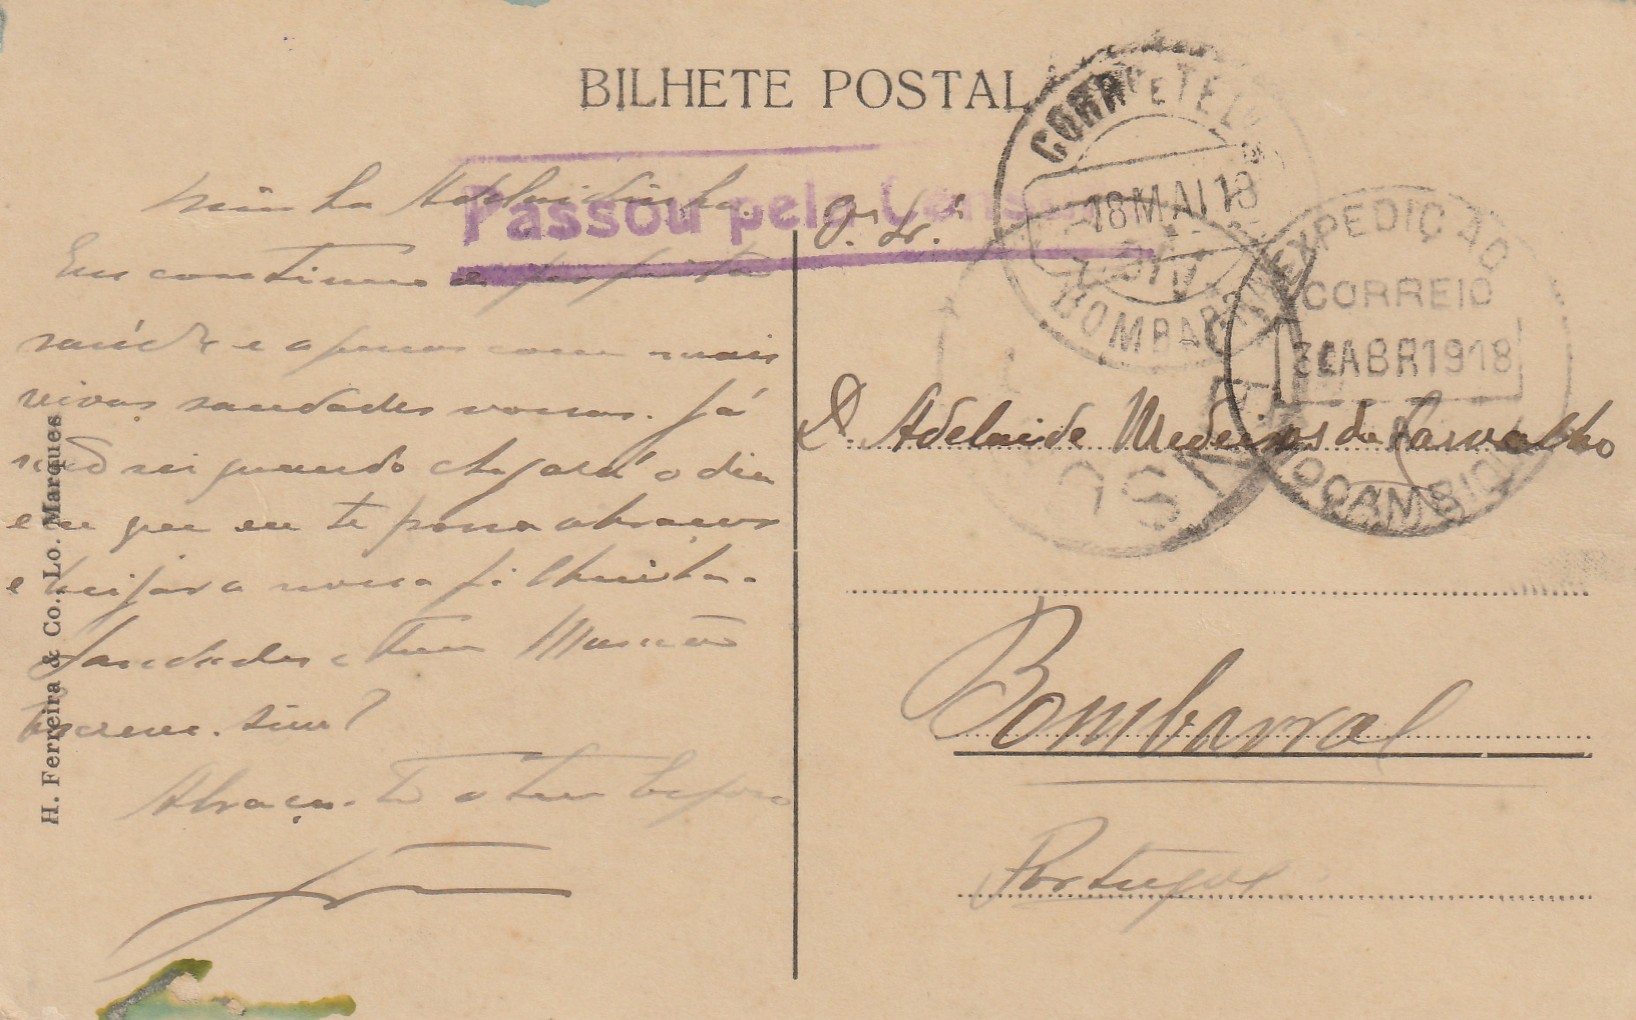 BILHETE POSTAL
CORR E TEL
18 MAI 18
BOMBARRAL
Passou pela Censura
EXPEDIÇÃO
CORREIO
ABR 1918
MOÇAMBIQUE
LISBOA
Minha Adelaidinha.
Eu continuo de perfeita
saúde e apenas com mais
vivas saudades vossas. Já
não sei quando chegará o dia
em que eu te possa abraçar
e beijar a nossa filhinha.
Saudades
Escreve. Sim?
Abraça-te o teu
D. Adelaide Medeiros de Carvalho
Bombarral
Portugal
H. Ferreira & Co. Lo. Marques